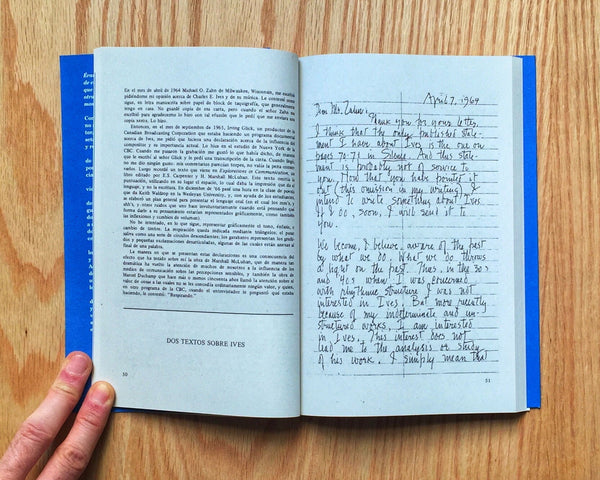 En el mes de abril de 1964 Michael O. Zahn de Milwaukee, Wisconsin, me escribió
pidiéndome mi opinión acerca de Charles E. Ives y de su música. Le contesté como
sigue, en letra manuscrita sobre papel de block de taquigrafía, que generalmente no
tenía en casa. No guardé copia de esa carta, pero cuando el señor Zahn me
escribió para agradecerme lo hizo con tal efusión que le pedí que me enviara una
copia Xerox. Lo hizo.
Entonces, en el mes de septiembre de 1965, Irving Glick, un productor de la
Canadian Broadcasting Corporation que estaba haciendo un programa documental
acerca de Ives, me pidió que hiciera una declaración acerca de la influencia del
compositor y su importancia actual. Lo hice en el estudio de Nueva York de la
CBC. Cuando me pasaron la grabación me gustó lo que había dicho, de manera
que le escribí al señor Glick y le pedí una transcripción de la carta. Cuando llegó,
no me dio ningún gusto: mis comentarios parecían torpes, no valía la pena emitir-
los. Luego recordé un texto que mana en Explorations in Communication, un
libro editado por E.S. Carpenter y H. Marshall McLuhan. Este texto omitía la
puntuación, utilizando en su lugar el espacio, lo cual daba la impresión que da el
lenguaje, y no la escritura. En diciembre de '66 pasé una hora en la clase de poesía
que da Keith Waldrop en la Wesleyan University y, con ayuda de los estudiantes,
se elaboró un plan general para presentar el lenguaje oral (en el cual los mm's, y
ahh's, y otros ruidos que uno hace involuntariamente cuando está pensando qué
forma darle a su pensamiento estarían representados gráficamente, como también
las inflexiones y cambios de volumen).
No he intentado, en lo que sigue, representar gráficamente el tono, énfasis, o
cambio de timbre. La respiración queda indicada mediante triángulos; el pasar
saliva como una serie de círculos descendiantes; los garabatos representan los gruñi-
dos y pequeñas exclamaciones desarticuladas, algunas de las cuales están anexas al
final de una palabra.
La manera en que se presentan estas declaraciones es una consecuencia del
efecto que ha dejado sobre mí la obra de Marshall McLuhan, que de manera tan
dramática ha vuelto la atención de muchos de nosotros a la influencia de los
medios de comunicación sobre las percepciones sensibles, y también la obra de
Marcel Duchamp que hace más o menos cincuenta años llamó la atención sobre el
valor de cosas a las que no se les concedía ordinariamente ningún valor, y quien,
en un programa de la CBC, cuando el entrevistador le preguntó qué estaba
haciendo, le contestó: "Respirando."
DOS TEXTOS SOBRE IVES
50
April 7, 1964
Dear Mr. Zahn:
Thank you for your letter.
I think that the only published state-
ment I have about Ives is the one on
pages 70-71 in Silence. And this state-
ment is probably not of service to
you. Now that you have pointed it
out (this omission in my writing), I
intend to write something about Ives.
If I do, soon, I will send it to
you.
We become, I believe, aware of the past
by what we do. What we do throws
a light on the past. Thus, in the 30s
and 40s when I was concerned
with rhythmic structure I was not
interested in Ives. But more recently
because of my indeterminate and un-
structured works, I am interested
in Ives. This interest does not
lead me to the analysis or study
of his work. I simply mean that
51